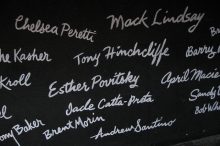 Chelsea Peretti Mack Lindsay
he Kasher Tony Hinchcliffe Barry
Kroll Esther Povitsky April Maca
Jade Catta-Preta Sandy
ony Baker Brent Morin Bob
Andrew Santino